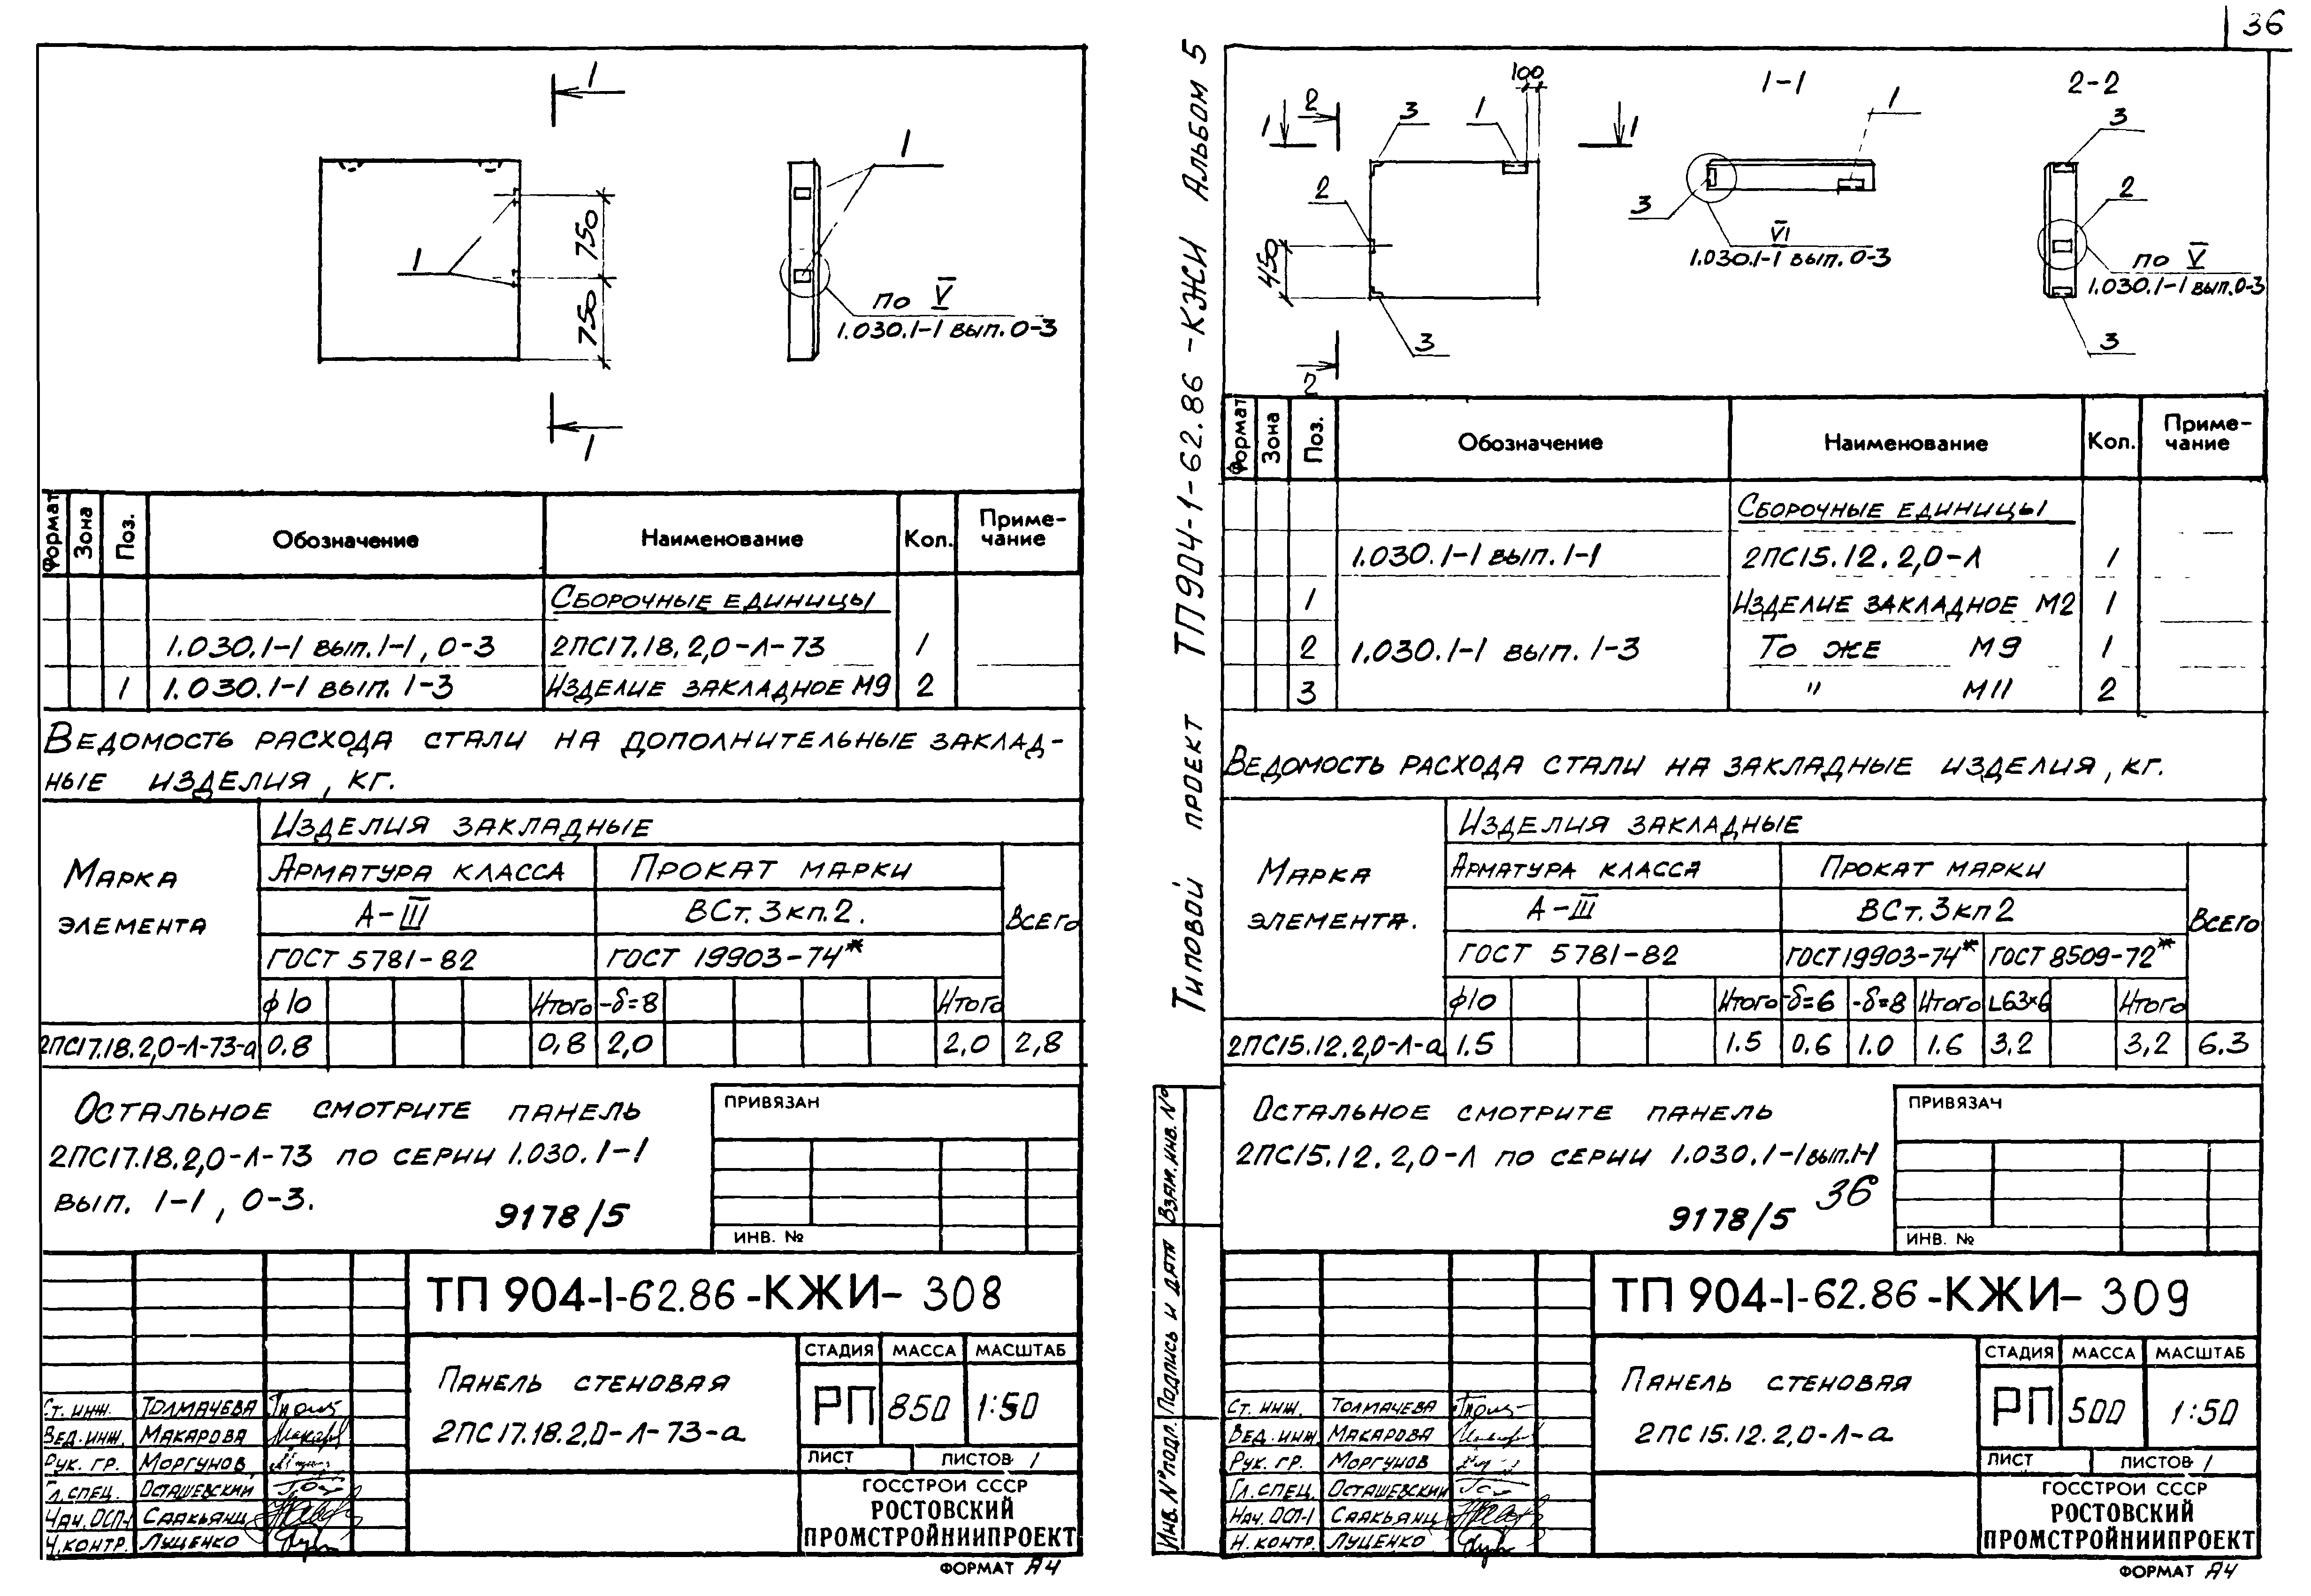 36
1
1
1
750
750
1
по V
1.030.1-1 вып. 0-3
1
Формат Зона Поз. Обозначение Наименование Кол. Приме-
чание
Сборочные единицы
1.030.1-1 вып. 1-1, 0-3 2ПС17.18.2,0-Л-73 1
1 1.030.1-1 вып. 1-3 Изделие закладное М9 2
Ведомость расхода стали на дополнительные заклад-
ные изделия, кг.
Марка
элемента
Изделия закладные
Арматура класса Прокат марки
А-III ВСт.3кп.2. Всего
ГОСТ 5781-82 ГОСТ 19903-74*
ф10 Итого -δ=8 Итого
2ПС17.18.2,0-Л-73-а 0.8 0,8 2,0 2,0 2,8
Остальное смотрите панель
2ПС17.18.2,0-Л-73 по серии 1.030.1-1
вып. 1-1, 0-3.
9178/5
ПРИВЯЗАН
ИНВ. №
ТП 904-1-62.86-КЖИ-308
Панель стеновая
2ПС17.18.2,0-Л-73-а
СТАДИЯ МАССА МАСШТАБ
РП 850 1:50
ЛИСТ ЛИСТОВ 1
ГОССТРОЙ СССР
РОСТОВСКИЙ
ПРОМСТРОЙНИИПРОЕКТ
Ст. инж. Толмачева
Вед. инж. Макарова
Рук. гр. Моргунов
Гл. спец. Осташевский
Нач. ОСП-1 Саакьянц
Н. контр. Луценко
ФОРМАТ А4
Типовой проект ТП 904-1-62.86-КЖИ Альбом 5
1
2
3
1
100
1
2
450
3
2
1-1
1
3
VI
1.030.1-1 вып. 0-3
2-2
3
2
по V
1.030.1-1 вып. 0-3
3
Формат Зона Поз. Обозначение Наименование Кол. Приме-
чание
Сборочные единицы
1.030.1-1 вып. 1-1 2ПС15.12.2,0-Л 1
1 Изделие закладное М2 1
2 1.030.1-1 вып. 1-3 То же М9 1
3 " М11 2
Ведомость расхода стали на закладные изделия, кг.
Марка
элемента.
Изделия закладные
Арматура класса Прокат марки
А-III ВСт.3кп2 Всего
ГОСТ 5781-82 ГОСТ 19903-74* ГОСТ 8509-72*
ф10 Итого -δ=6 -δ=8 Итого L63×6 Итого
2ПС15.12.2,0-Л-а 1.5 1.5 0.6 1.0 1.6 3,2 3,2 6.3
Остальное смотрите панель
2ПС15.12.2,0-Л по серии 1.030.1-1 вып.1-1
36
9178/5
ПРИВЯЗАН
ИНВ. №
Взам. инв. №
Подпись и дата
Инв. № подл.
ТП 904-1-62.86-КЖИ-309
Панель стеновая
2ПС15.12.2,0-Л-а
СТАДИЯ МАССА МАСШТАБ
РП 500 1:50
ЛИСТ ЛИСТОВ 1
ГОССТРОЙ СССР
РОСТОВСКИЙ
ПРОМСТРОЙНИИПРОЕКТ
Ст. инж. Толмачева
Вед. инж. Макарова
Рук. гр. Моргунов
Гл. спец. Осташевский
Нач. ОСП-1 Саакьянц
Н. контр. Луценко
ФОРМАТ А4